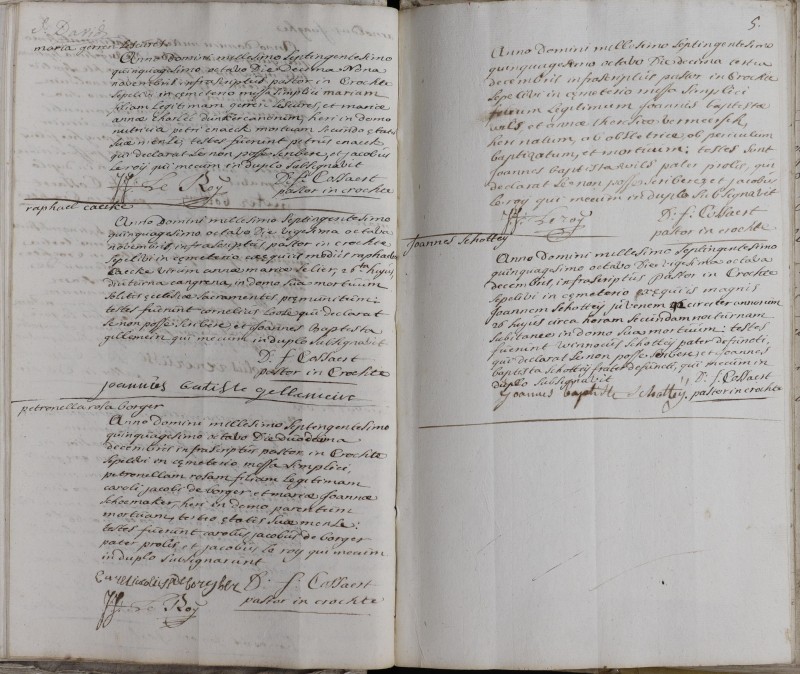 maria
Anno domini millesimo septingentesimo
quinquagesimo octavo Die decima nona
novembris infrascriptus pastor in Crockte
sepelivi in cemeterio missa simplici mariam
filiam legitimam et mariæ
annæ heri in domo
nutricis petri enaeck mortuam secunda ætatis
suæ testes fuerunt petrus enaeck
qui declarat se non posse scribere, et jacobus
le roy qui mecum in duplo subsignavit
Le Roy D. f. Cossaert
pastor in crockte
raphael caecke
Anno domini millesimo septingentesimo
quinquagesimo octavo Die vigesima octava
novembris infrascriptus pastor in crockte
sepelivi in cemeterio exequiis mediis raphaelem
Caecke virum annæ mariæ 26ta hujus
diuturna cangrena, in domo sua mortuum
solitis ecclesiæ sacramentis præmunitum:
testes fuerunt cornelius qui declarat
se non posse scribere et joannes Baptista
qui mecum in duplo subsignavit
D. f. Cossaert
pastor in Crockte
joannees batiste gellemeine
petronella rosa borger
Anno domini millesimo septingentesimo
quinquagesimo octavo Die duodecima
decembris infrascriptus pastor in Crockte
sepelivi in cemeterio missa simplici,
petronellam rosam filiam legitimam
caroli jacobi de borger et mariæ joannæ
schoemaker, heri in domo parentum
mortuam, tertio ætatis suæ mense:
testes fuerunt carolus jacobus de borger
pater prolis et jacobus le roy qui mecum
in duplo subsignarunt
D. f. Cossaert
Le Roy pastor in crockte
5.
Anno domini millesimo septingentesimo
quinquagesimo octavo Die decima tertia
decembris infrascriptus pastor in Crockte
sepelivi in cemeterio missa simplici
filium legitimum joannis baptistæ
wils, et annæ theresiæ vermeersch,
heri natum, ab obstetrice, ob periculum
baptizatum, et mortuum; testes sunt
joannes baptista wils pater prolis, qui
declarat se non posse scribere et jacobus
le roy qui mecum in duplo subsignavit
Le roy D. f. Cossaert
pastor in crockte
Joannes Schottey
Anno Domini millesimo septingentesimo
quinquagesimo octavo Die vigesima octava
decembris, infrascriptus pastor in Crockte
sepelivi in cemeterio exequiis magnis
joannem schottey juvenem circiter annorum
26 hujus circa horam secundam nocturnam
subitanee in domo sua mortuum: testes
fuerunt winnocus schottey pater defuncti,
qui declarat se non posse scribere, et joannes
baptista schottey frater defuncti, qui mecum in
duplo subsignavit D. f. Cossaert
Joannes baptiste Schottey, pastor in crockte